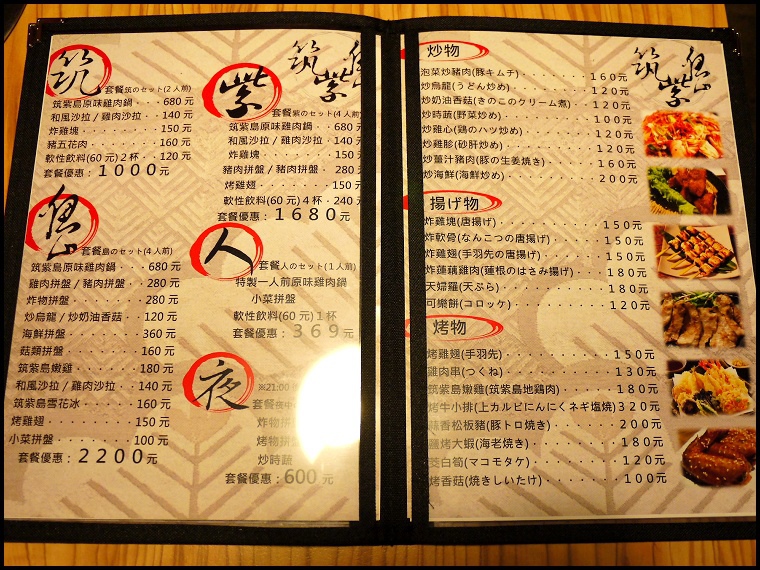 筑
套餐筑のセット(2人前)
筑紫島原味雞肉鍋‧‧680元
和風沙拉 / 雞肉沙拉‧‧140元
炸雞塊‧‧‧‧‧150元
豬五花肉‧‧‧‧160元
軟性飲料(60元)2杯‧‧120元
套餐優惠：1000元
島
套餐島のセット(4人前)
筑紫島原味雞肉鍋‧‧‧680元
雞肉拼盤 / 豬肉拼盤‧‧280元
炸物拼盤‧‧‧‧‧280元
炒烏龍 / 炒奶油香菇‧‧120元
海鮮拼盤‧‧‧‧360元
菇類拼盤‧‧‧‧160元
筑紫島嫩雞‧‧‧‧180元
和風沙拉 / 雞肉沙拉‧‧140元
筑紫島雪花冰‧‧‧160元
烤雞翅‧‧‧‧‧150元
小菜拼盤‧‧‧‧100元
套餐優惠：2200元
筑紫島
紫
套餐紫のセット(4人前)
筑紫島原味雞肉鍋‧‧‧680元
和風沙拉 / 雞肉沙拉‧‧140元
炸雞塊‧‧‧‧‧150
豬肉拼盤 / 豬肉拼盤‧‧280元
烤雞翅‧‧‧‧‧150元
軟性飲料(60元)4杯‧240元
套餐優惠：1680元
人
套餐人のセット(1人前)
特製一人前原味雞肉鍋
小菜拼盤
軟性飲料(60元)1杯
套餐優惠：369元
夜
※21:00
套餐夜
炸物拼
烤物拼
炒時蔬
套餐優惠：600元
筑紫島
炒物
泡菜炒豬肉(豚キムチ)‧‧‧‧‧160元
炒烏龍(うどん炒め)‧‧‧‧‧120元
炒奶油香菇(きのこのクリーム煮)‧‧120元
炒時蔬(野菜炒め)‧‧‧‧‧100元
炒雞心(鶏のハツ炒め)‧‧‧‧120元
炒雞胗(砂肝炒め)‧‧‧‧‧120元
炒薑汁豬肉(豚の生姜焼き)‧‧‧160元
炒海鮮(海鮮炒め)‧‧‧‧‧200元
揚げ物
炸雞塊(唐揚げ)‧‧‧‧‧150元
炸軟骨(なんこつの唐揚げ)‧‧‧150元
炸雞翅(手羽先の唐揚げ)‧‧‧150元
炸蓮藕雞肉(蓮根のはさみ揚げ)‧‧180元
天婦羅(天ぷら)‧‧‧‧‧180元
可樂餅(コロッケ)‧‧‧‧‧120元
烤物
烤雞翅(手羽先)‧‧‧‧‧150元
雞肉串(つくね)‧‧‧‧‧130元
筑紫島嫩雞(筑紫島地鶏肉)‧‧‧180元
烤牛小排(上カルビにんにくネギ塩焼)320元
蒜香松板豬(豚トロ焼き)‧‧‧200元
鹽烤大蝦(海老焼き)‧‧‧‧180元
茭白筍(マコモタケ)‧‧‧‧120元
烤香菇(焼きしいたけ)‧‧‧‧100元